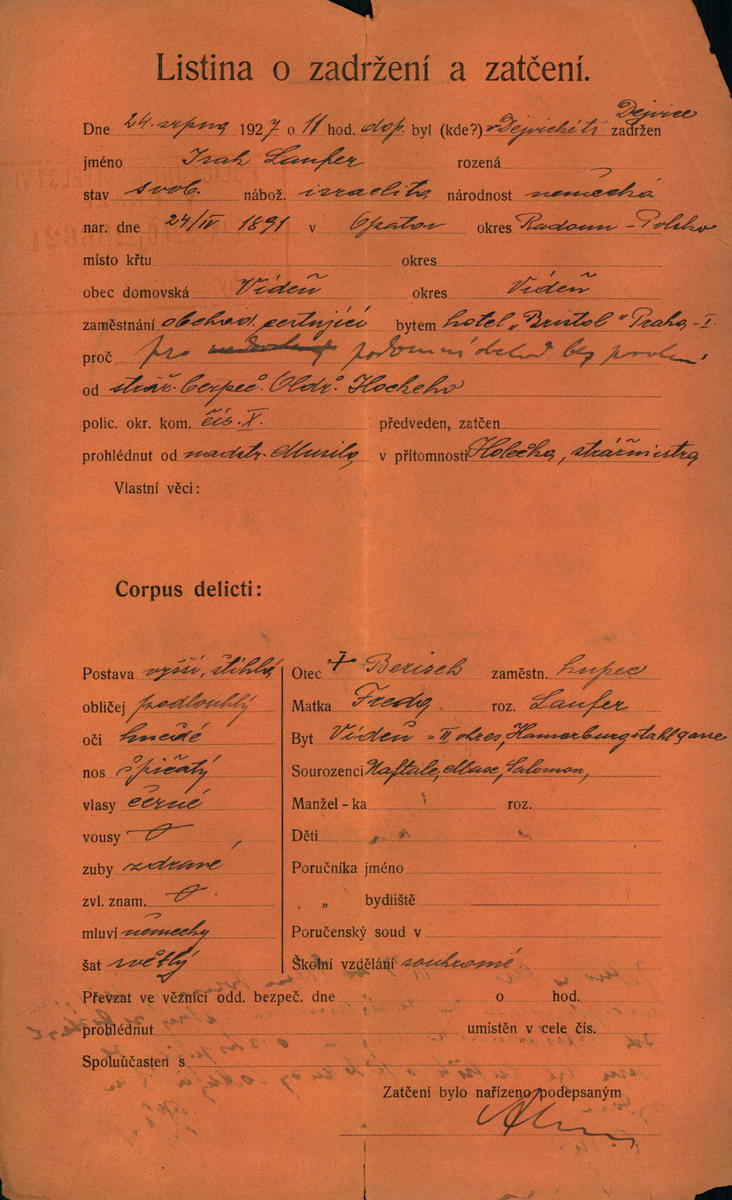 Listina o zadržení a zatčení.
Dejvice
Dne 24. srpna 1927 o 11 hod. dop. byl (kde?) v Dejvické tř. zadržen
jméno Isak Laufer rozená
stav svob. nábož. israelita národnost německá
nar. dne 24/IV 1891 v Opatov okres Radom - Polsko
místo křtu okres
obec domovská Vídeň okres Vídeň
zaměstnání obchod. cestující bytem hotel „Bristol" Praha - I.
proč pro podomní obchod bez povolení
od stráž. bezpeč. Oldř. Hockeho
polic. okr. kom. čís. X. předveden, zatčen
prohlédnut od nadstr. Musila v přítomnosti Holečka, strážmistra
Vlastní věci:
Corpus delicti:
Postava vyšší, štíhlá
obličej podlouhlý
oči hnědé
nos špičatý
vlasy černé
vousy
zuby zdravé
zvl. znam.
mluví německy
šat světlý
Otec † Berisch zaměstn. kupec
Matka Freda roz. Laufer
Byt Vídeň - II okres,
Sourozenci Naftale, Max, Salomon,
Manžel - ka roz.
Děti
Poručníka jméno
„ bydliště
Poručenský soud v
Školní vzdělání soukromé
Převzat ve věznici odd. bezpeč. dne o hod.
prohlédnut umístěn v cele čís.
Spoluúčasten s
Zatčení bylo nařízeno podepsaným